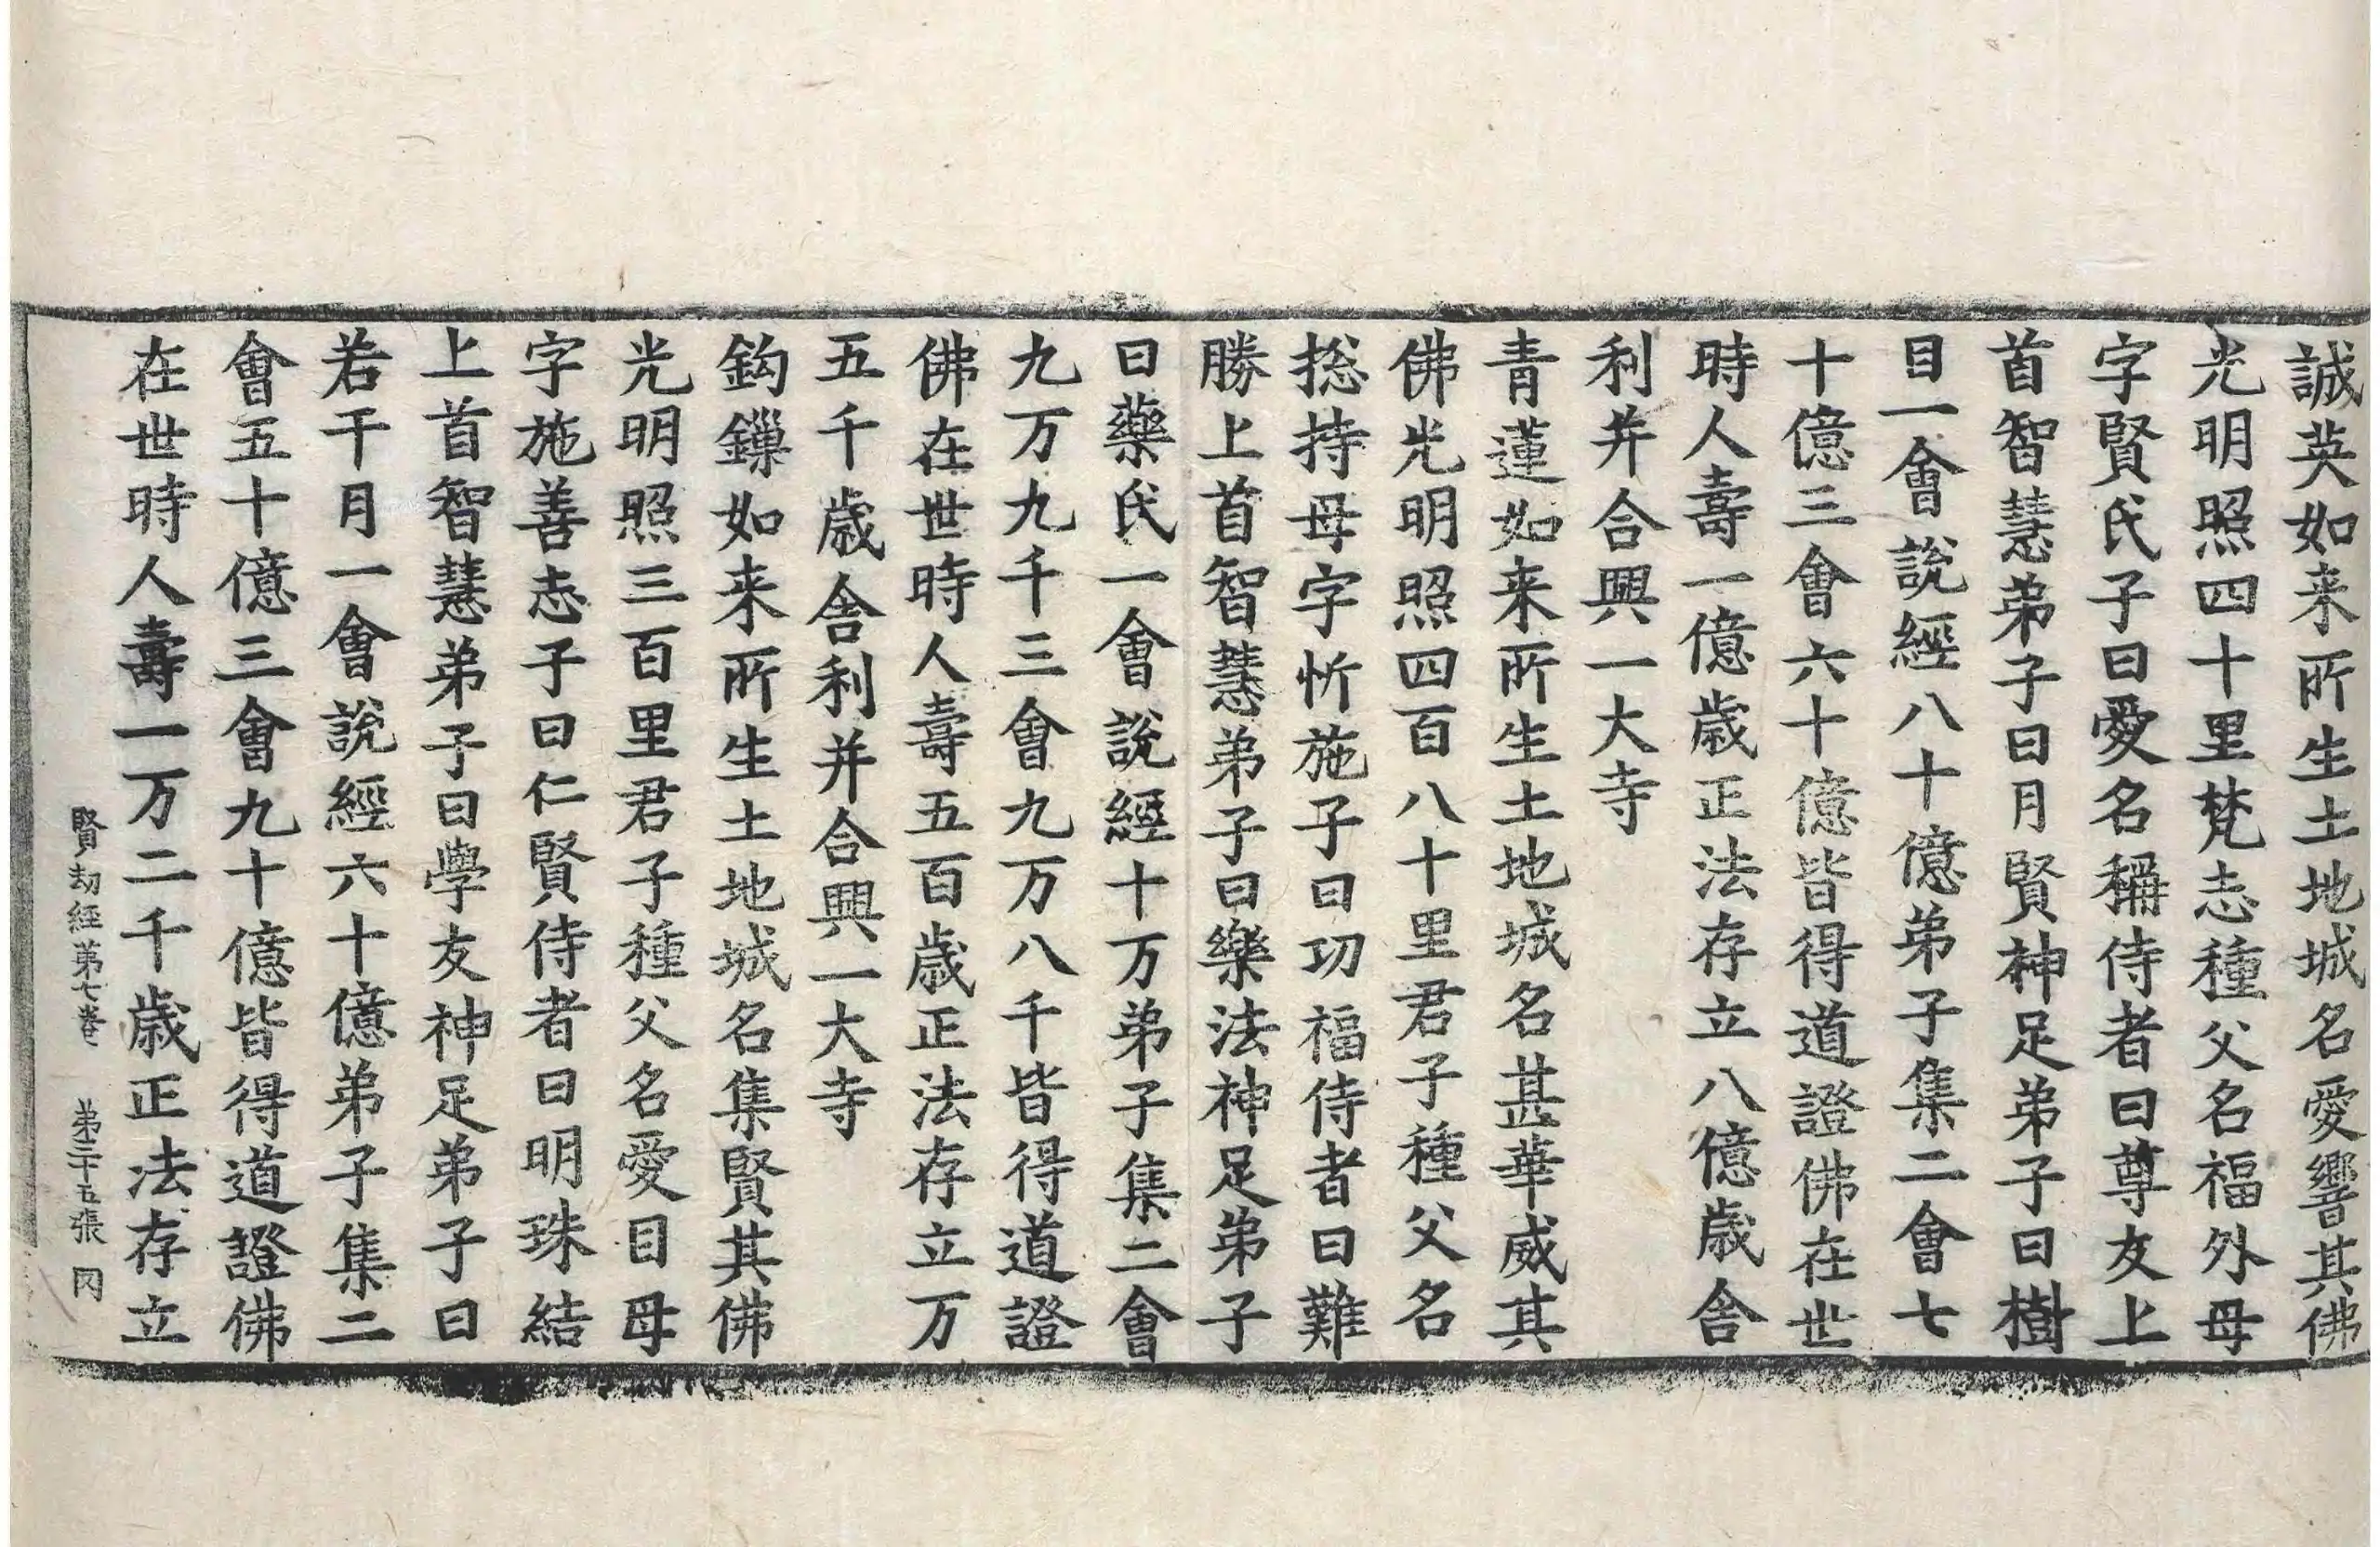 誠英如来所生土地城名愛響其佛
光明照四十里梵志種父名福外母
字賢氏子曰愛名稱侍者曰尊友上
首智慧弟子曰月賢神足弟子曰樹
目一會說經八十億弟子集二會七
十億三會六十億皆得道證佛在世
時人壽一億歲正法存立八億歲舍
利并合興一大寺
青蓮如来所生土地城名甚華威其
佛光明照四百八十里君子種父名
捴持母字忻施子曰功福侍者曰難
勝上首智慧弟子曰樂法神足弟子
曰藥氏一會說經十万弟子集二會
九万九千三會九万八千皆得道證
佛在世時人壽五百歲正法存立万
五千歲舍利并合興一大寺
鈎鏁如来所生土地城名集賢其佛
光明照三百里君子種父名愛目母
字施善志子曰仁賢侍者曰明珠結
上首智慧弟子曰學友神足弟子曰
若干月一會說經六十億弟子集二
會五十億三會九十億皆得道證佛
在世時人壽一万二千歲正法存立
賢劫經第七卷 第二十五張 罔